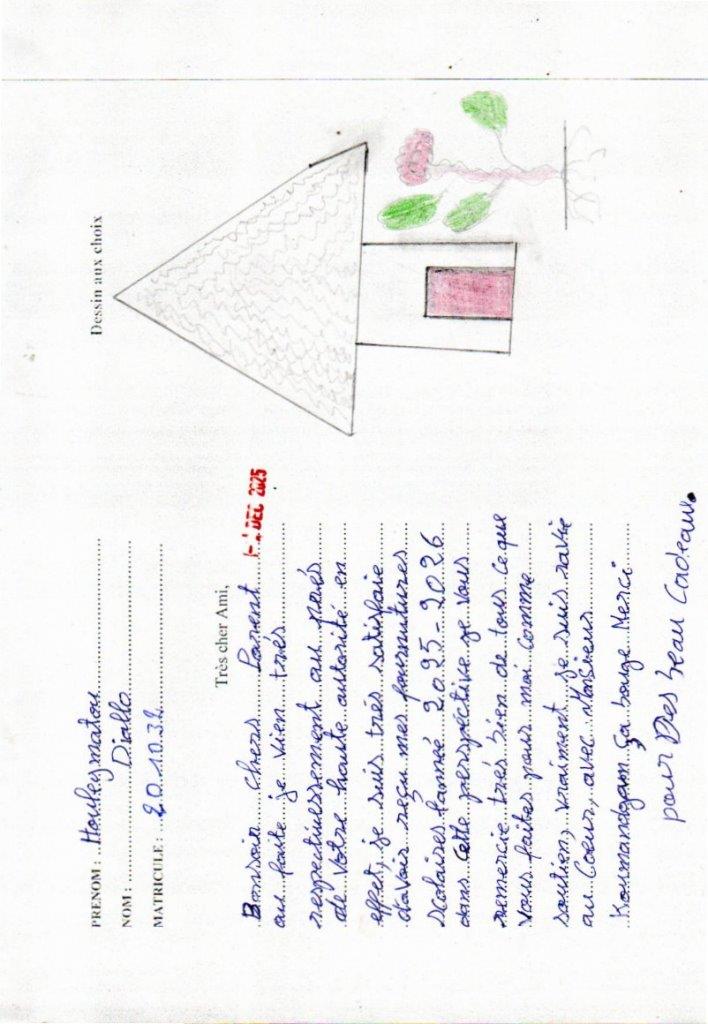 PRENOM : Houleymatou
NOM : Diallo
MATRICULE : 201032
Dessin aux choix
Très cher Ami,
1-1 DEC 2025
Bonsoir chers Parent
au faite je vien très
respectieusement au près
de Votre haute autorité en
effet, je suis très satisfaie
d'avoir reçu mes fournutures
scolaires l'anné 2025-2026
dans cette perspective je vous
remercie très bien de tous ce que
Vous faites pour moi comme
soutien, vraiment je suis ravie
au Coeur, avec Monsieur
Koumandgam ça bouge Merci
pour Des beau Cadeaux.